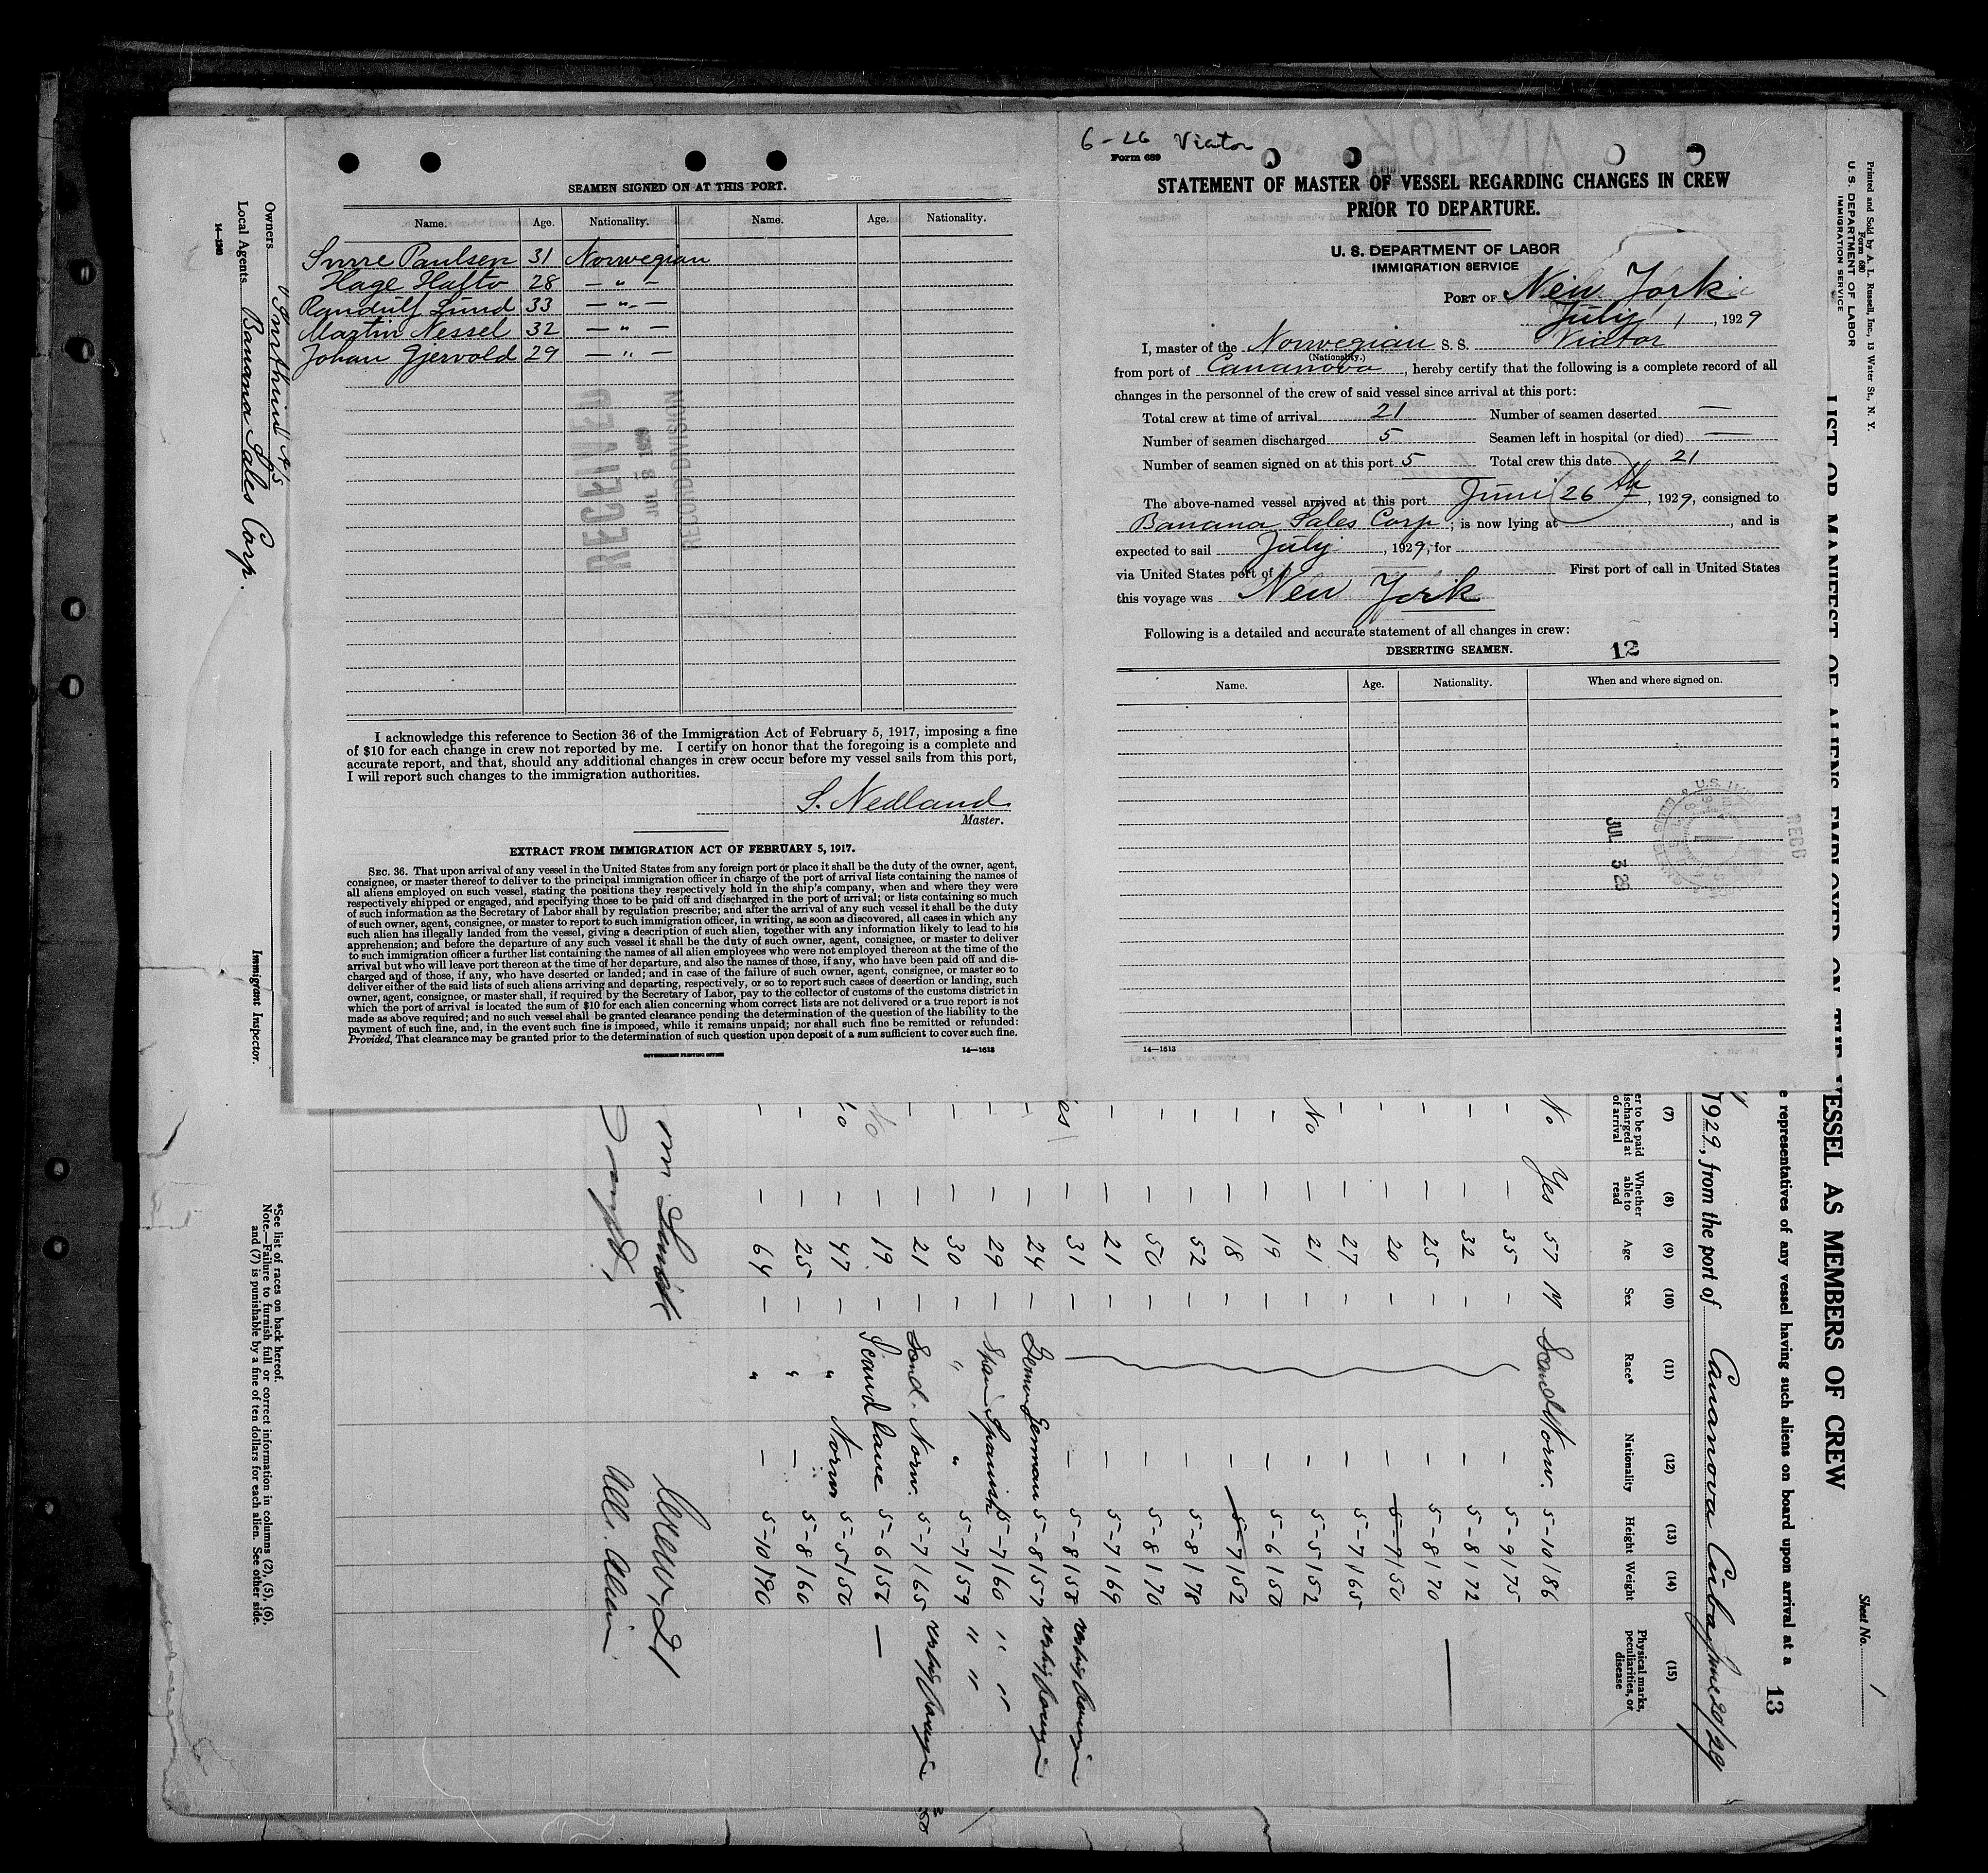 SEAMEN SIGNED ON AT THIS PORT.
Name. Age. Nationality. Name. Age. Nationality.
Paulsen 31 Norwegian
Hage Hafto 28 — " —
Randulf Lund 33 — " —
Martin Nessel 32 — " —
Johan Gjervold 29 — " —
RECEIVED
RECORD DIVISION
I acknowledge this reference to Section 36 of the Immigration Act of February 5, 1917, imposing a fine
of $10 for each change in crew not reported by me. I certify on honor that the foregoing is a complete and
accurate report, and that, should any additional changes in crew occur before my vessel sails from this port,
I will report such changes to the immigration authorities.
S. Nedland
Master.
EXTRACT FROM IMMIGRATION ACT OF FEBRUARY 5, 1917.
SEC. 36. That upon arrival of any vessel in the United States from any foreign port or place it shall be the duty of the owner, agent,
consignee, or master thereof to deliver to the principal immigration officer in charge of the port of arrival lists containing the names of
all aliens employed on such vessel, stating the positions they respectively hold in the ship's company, when and where they were
respectively shipped or engaged, and specifying those to be paid off and discharged in the port of arrival; or lists containing so much
of such information as the Secretary of Labor shall by regulation prescribe; and after the arrival of any such vessel it shall be the duty
of such owner, agent, consignee, or master to report to such immigration officer, in writing, as soon as discovered, all cases in which any
such alien has illegally landed from the vessel, giving a description of such alien, together with any information likely to lead to his
apprehension; and before the departure of any such vessel it shall be the duty of such owner, agent, consignee, or master to deliver
to such immigration officer a further list containing the names of all alien employees who were not employed thereon at the time of the
arrival but who will leave port thereon at the time of her departure, and also the names of those, if any, who have been paid off and dis-
charged and of those, if any, who have deserted or landed; and in case of the failure of such owner, agent, consignee, or master so to
deliver either of the said lists of such aliens arriving and departing, respectively, or so to report such cases of desertion or landing, such
owner, agent, consignee, or master shall, if required by the Secretary of Labor, pay to the collector of customs of the customs district in
which the port of arrival is located the sum of $10 for each alien concerning whom correct lists are not delivered or a true report is not
made as above required; and no such vessel shall be granted clearance pending the determination of the question of the liability to the
payment of such fine, and, in the event such fine is imposed, while it remains unpaid; nor shall such fine be remitted or refunded:
Provided, That clearance may be granted prior to the determination of such question upon deposit of a sum sufficient to cover such fine.
GOVERNMENT PRINTING OFFICE 14—1613
6-26 Viator
Form 689
STATEMENT OF MASTER OF VESSEL REGARDING CHANGES IN CREW
PRIOR TO DEPARTURE.
U. S. DEPARTMENT OF LABOR
IMMIGRATION SERVICE
PORT OF New York
July 1, 1929
I, master of the Norwegian S. S. Viator
(Nationality.)
from port of Cananova, hereby certify that the following is a complete record of all
changes in the personnel of the crew of said vessel since arrival at this port:
Total crew at time of arrival 21 Number of seamen deserted —
Number of seamen discharged 5 Seamen left in hospital (or died) —
Number of seamen signed on at this port 5 Total crew this date 21
The above-named vessel arrived at this port Juni 26th, 1929, consigned to
Banana Sales Corp; is now lying at , and is
expected to sail July, 1929, for
via United States port of First port of call in United States
this voyage was New York
Following is a detailed and accurate statement of all changes in crew:
DESERTING SEAMEN. 12
Name. Age. Nationality. When and where signed on.
JUL 3 29
RECD
14—1613
Owners
Local Agents Banana Sales Corp.
14—1240
Immigrant Inspector.
*See list of races on back hereof.
Note.—Failure to furnish full or correct information in columns (2), (5), (6),
and (7) is punishable by a fine of ten dollars for each alien. See other side.
Printed and Sold by A. L. Russell, Inc., 13 Water St., N. Y.
Form 680
U. S. DEPARTMENT OF LABOR
IMMIGRATION SERVICE
Sheet No. 1
LIST OR MANIFEST OF ALIENS EMPLOYED ON THE VESSEL AS MEMBERS OF CREW
e representatives of any vessel having such aliens on board upon arrival at a 13
1929, from the port of Cananova Cuba June 20/29
(7) (8) (9) (10) (11) (12) (13) (14) (15)
er to be paid ischarged at of arrival Whether able to read Age Sex Race* Nationality Height Weight Physical marks, peculiarities, or disease
No Yes 57 M Scand Norw. 5-10 186
— — 35 — — 5-9 175
— — 32 — — 5-8 172
— — 25 — — 5-8 170
— — 20 — — 5-7 150
— — 27 — — 5-7 165
No — 21 — — 5-5 152
— — 19 — — 5-6 150
— — 18 — — 5-7 152
— — 52 — — 5-8 178
— — 50 — — 5-8 170
— — 21 — — 5-7 169
es — 31 — — 5-8 158
— — 24 — German German 5-8 157
— — 29 — Span Spanish 5-7 160 " "
— — 30 — " " 5-7 159 " "
— — 21 — Scand. Norw. 5-7 165
No — 19 — Scand Dane 5-6 156 —
— 47 — " Norw 5-5 150
— — 25 — " — 5-8 160
— — 64 — " — 5-10 190
Crew, 21
All. Alien